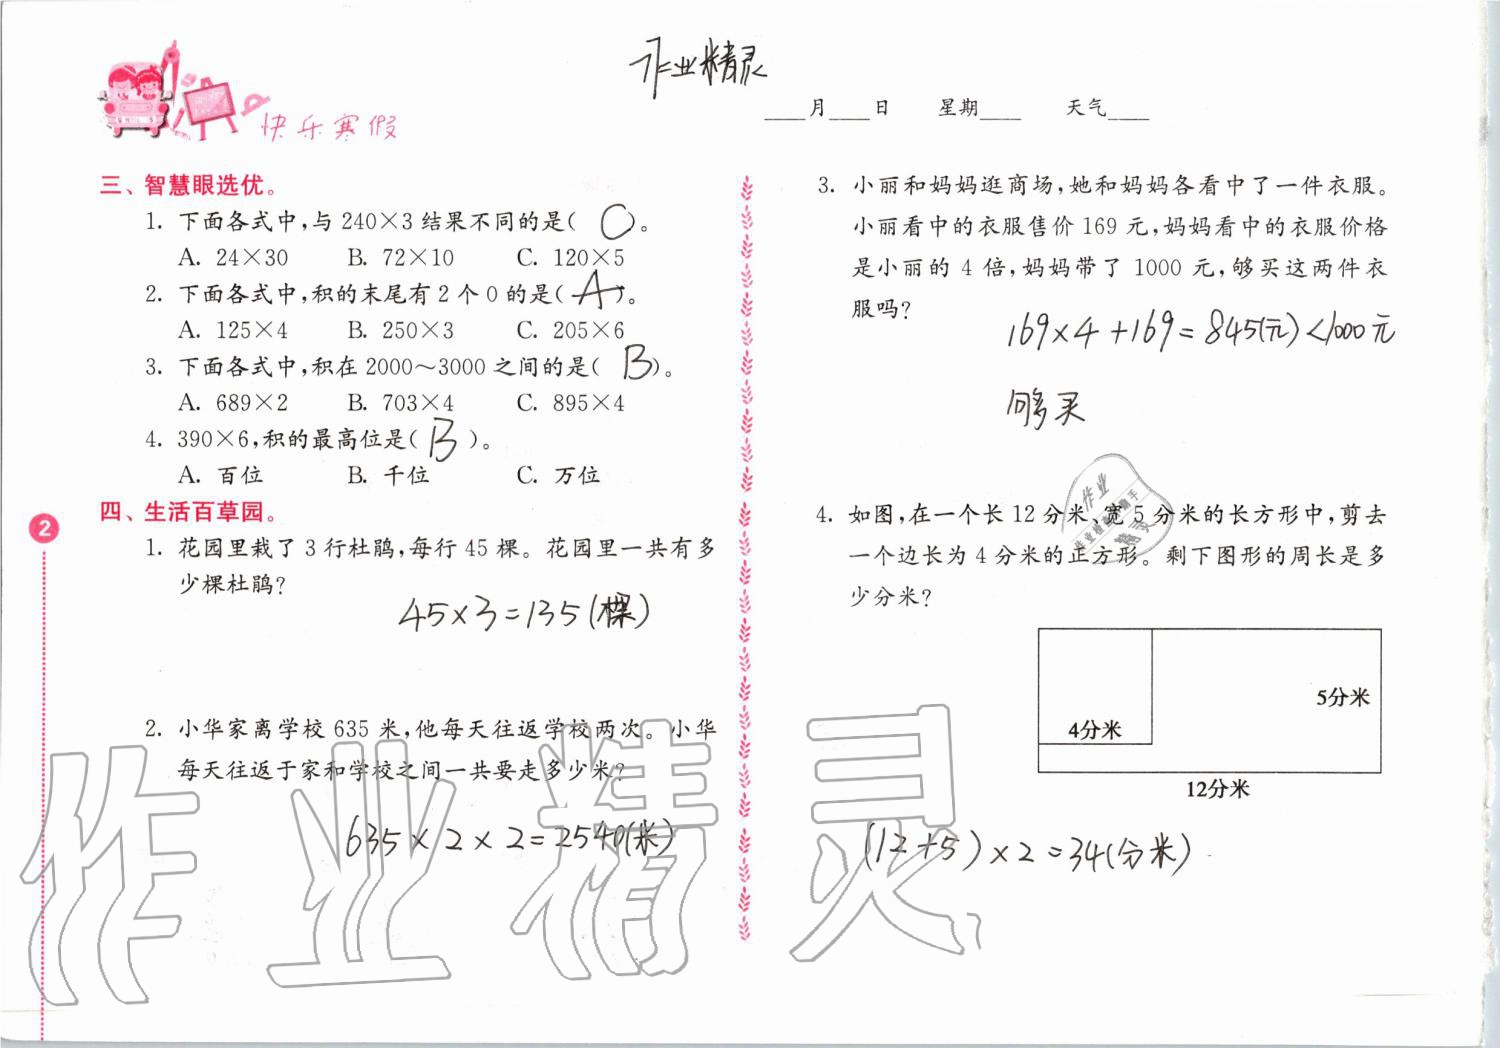 作业精灵
快乐寒假
____月____日 星期____ 天气____
三、智慧眼选优。
1. 下面各式中,与240×3结果不同的是( C )。
A. 24×30 B. 72×10 C. 120×5
2. 下面各式中,积的末尾有2个0的是( A )。
A. 125×4 B. 250×3 C. 205×6
3. 下面各式中,积在2000~3000之间的是( B )。
A. 689×2 B. 703×4 C. 895×4
4. 390×6,积的最高位是( B )。
A. 百位 B. 千位 C. 万位
四、生活百草园。
1. 花园里栽了3行杜鹃,每行45棵。花园里一共有多
少棵杜鹃?
45×3=135(棵)
2. 小华家离学校635米,他每天往返学校两次。小华
每天往返于家和学校之间一共要走多少米?
635×2×2=2540(米)
2
3. 小丽和妈妈逛商场,她和妈妈各看中了一件衣服。
小丽看中的衣服售价169元,妈妈看中的衣服价格
是小丽的4倍,妈妈带了1000元,够买这两件衣
服吗?
169×4+169=845(元)<1000元
够买
4. 如图,在一个长12分米,宽5分米的长方形中,剪去
一个边长为4分米的正方形。剩下图形的周长是多
少分米?
5分米
4分米
12分米
(12+5)×2=34(分米)
作业精灵